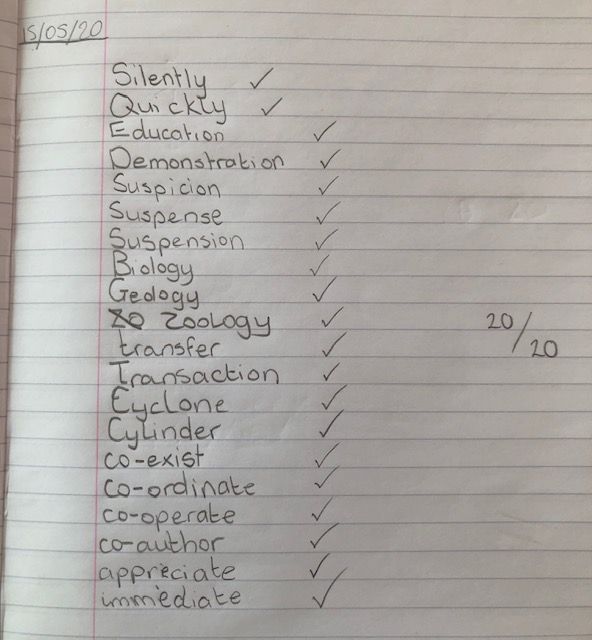 15/05/20
Silently ✓
Quickly ✓
Education ✓
Demonstration ✓
Suspicion ✓
Suspense ✓
Suspension ✓
Biology ✓
Geology ✓
Zoology ✓
transfer ✓
Transaction ✓
Cyclone ✓
Cylinder ✓
co-exist ✓
co-ordinate ✓
co-operate ✓
co-author ✓
appreciate ✓
immediate ✓
20/20